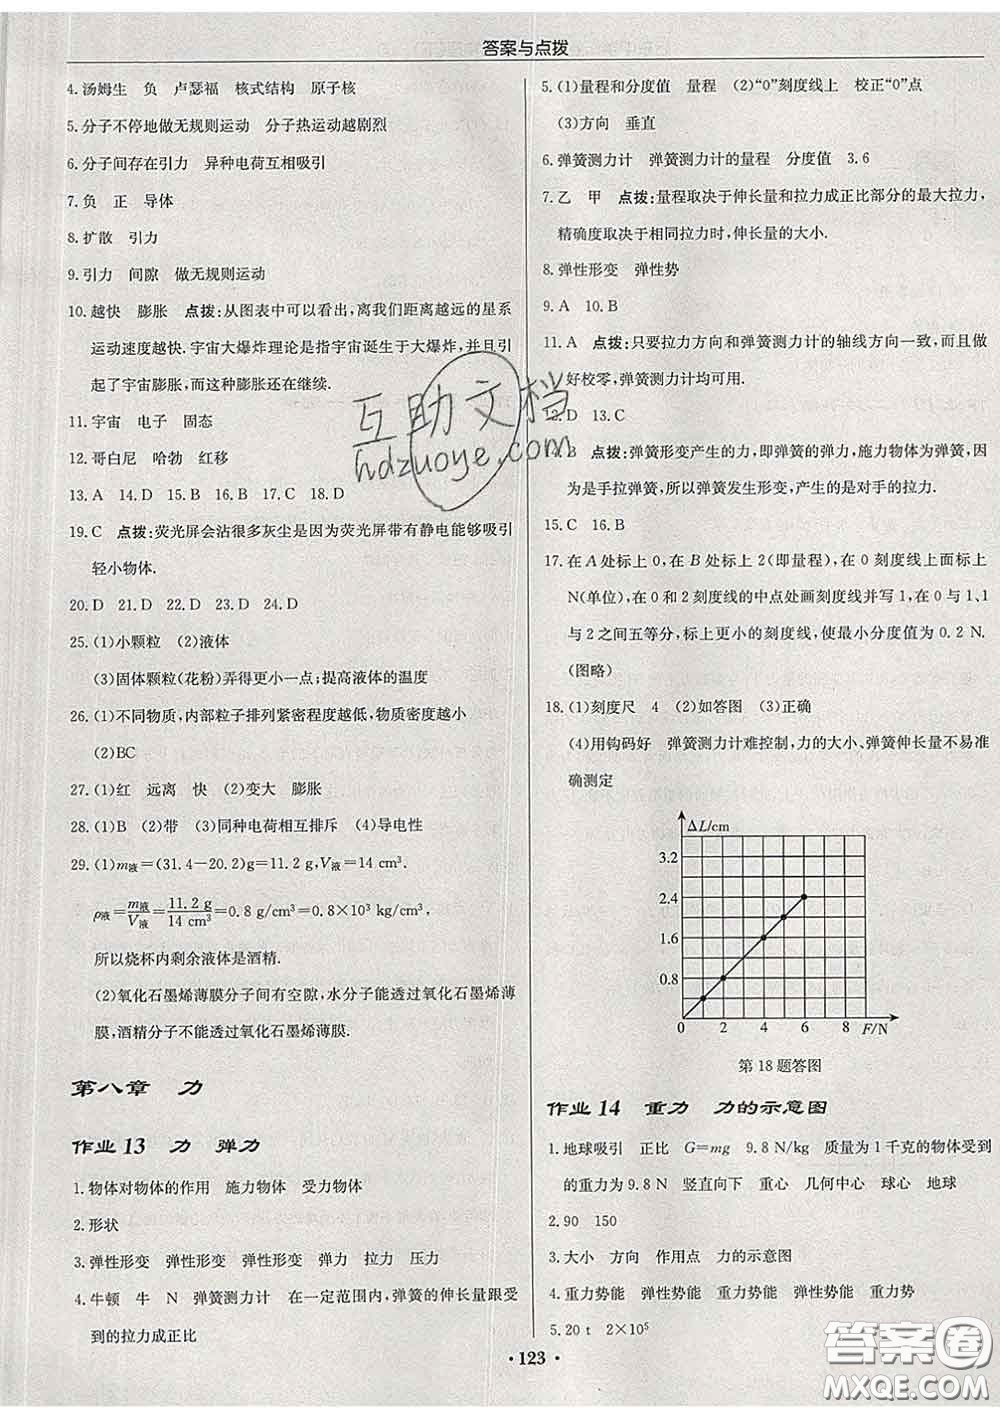 答案与点拨
4.汤姆生　负　卢瑟福　核式结构　原子核
5.分子不停地做无规则运动　分子热运动越剧烈
6.分子间存在引力　异种电荷互相吸引
7.负　正　导体
8.扩散　引力
9.引力　间隙　做无规则运动
10.越快　膨胀　点拨:从图表中可以看出,离我们距离越远的星系
运动速度越快.宇宙大爆炸理论是指宇宙诞生于大爆炸,并且引
起了宇宙膨胀,而这种膨胀还在继续.
11.宇宙　电子　固态
12.哥白尼　哈勃　红移
13.A　14.D　15.B　16.B　17.C　18.D
19.C　点拨:荧光屏会沾很多灰尘是因为荧光屏带有静电能够吸引
轻小物体.
20.D　21.D　22.D　23.D　24.D
25.(1)小颗粒　(2)液体
(3)固体颗粒(花粉)弄得更小一点;提高液体的温度
26.(1)不同物质,内部粒子排列紧密程度越低,物质密度越小
(2)BC
27.(1)红　远离　快　(2)变大　膨胀
28.(1)B　(2)带　(3)同种电荷相互排斥　(4)导电性
29.(1)m液=(31.4-20.2)g=11.2 g,V液=14 cm³.
ρ液=m液/V液=11.2 g/14 cm³=0.8 g/cm³=0.8×10³ kg/cm³,
所以烧杯内剩余液体是酒精.
(2)氧化石墨烯薄膜分子间有空隙,水分子能透过氧化石墨烯薄
膜,酒精分子不能透过氧化石墨烯薄膜.
第八章　力
作业13　力　弹力
1.物体对物体的作用　施力物体　受力物体
2.形状
3.弹性形变　弹性形变　弹性形变　弹力　拉力　压力
4.牛顿　牛　N　弹簧测力计　在一定范围内,弹簧的伸长量跟受
到的拉力成正比
5.(1)量程和分度值　量程　(2)“0”刻度线上　校正“0”点
(3)方向　垂直
6.弹簧测力计　弹簧测力计的量程　分度值　3.6
7.乙　甲　点拨:量程取决于伸长量和拉力成正比部分的最大拉力,
精确度取决于相同拉力时,伸长量的大小.
8.弹性形变　弹性势
9.A　10.B
11.A　点拨:只要拉力方向和弹簧测力计的轴线方向一致,而且做
好校零,弹簧测力计均可用.
12.D　13.C
14.B　点拨:弹簧形变产生的力,即弹簧的弹力,施力物体为弹簧,因
为是手拉弹簧,所以弹簧发生形变,产生的是对手的拉力.
15.C　16.B
17.在A处标上0,在B处标上2(即量程),在0刻度线上面标上
N(单位),在0和2刻度线的中点处画刻度线并写1,在0与1、1
与2之间五等分,标上更小的刻度线,使最小分度值为0.2 N.
(图略)
18.(1)刻度尺　4　(2)如答图　(3)正确
(4)用钩码好　弹簧测力计难控制,力的大小、弹簧伸长量不易准
确测定
ΔL/cm
3.2
2.4
1.6
0.8
0　2　4　6　8　F/N
第18题答图
作业14　重力　力的示意图
1.地球吸引　正比　G=mg　9.8 N/kg　质量为1千克的物体受到
的重力为9.8 N　竖直向下　重心　几何中心　球心　地球
2.90　150
3.大小　方向　作用点　力的示意图
4.重力势能　弹性势能　重力势能　弹性势能　重力势
5.20 t　2×10⁵
• 123 •
互助文档
hdzuoye.com
答案圈
MXQE.COM